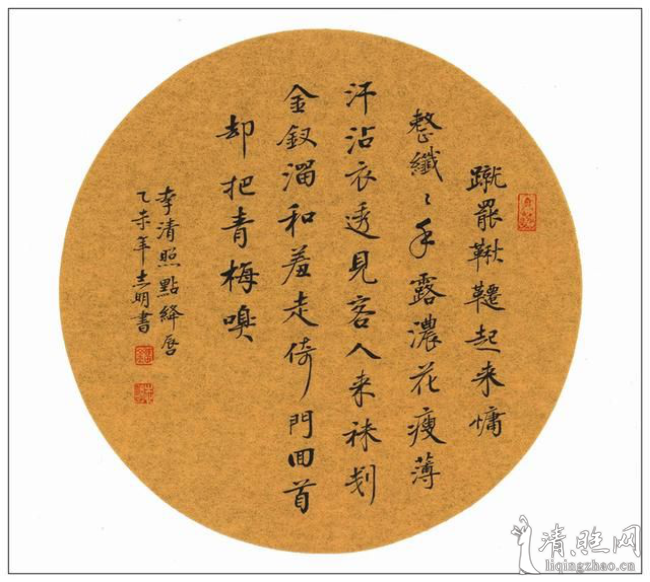 蹴罷鞦韆起来慵
整纖〻手露濃花瘦薄
汗沾衣透見客人来袜剗
金釵溜和羞走倚門囬首
却把青梅嗅
李清照點絳唇
乙未年志明書
清照网
liqingzhao.cn